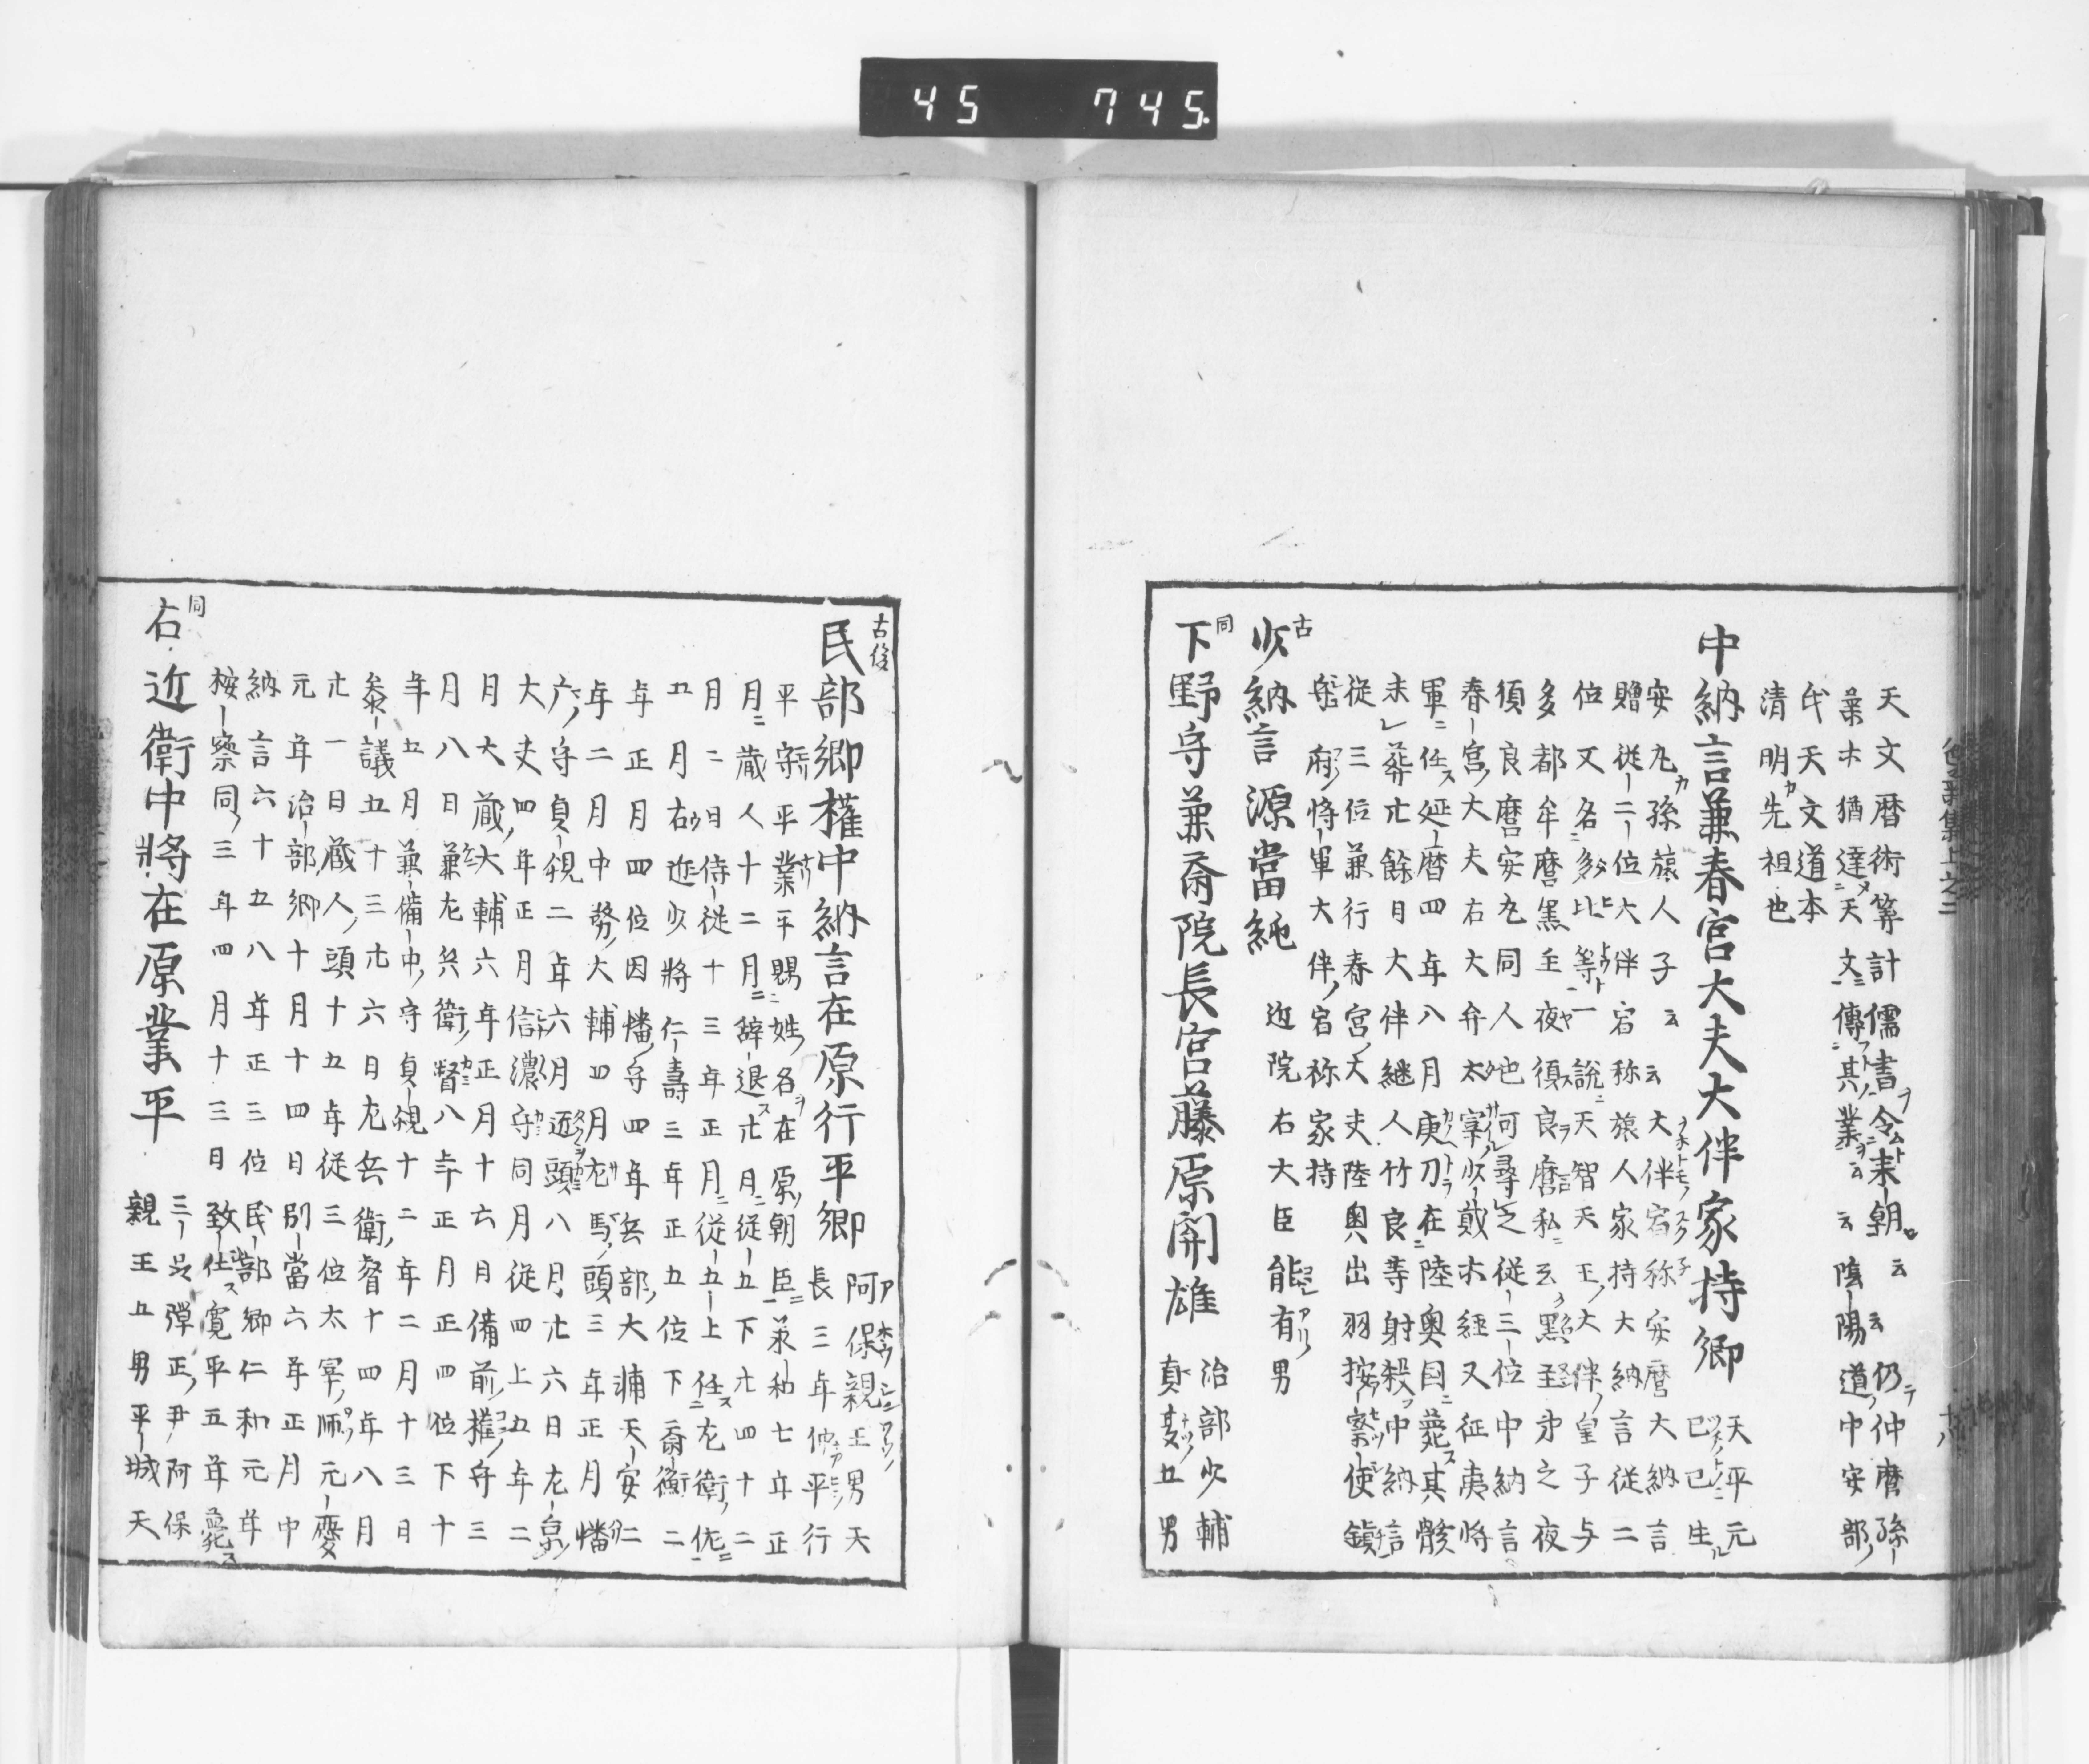 45 745.
天文暦術筭計儒書令耒朝云云仍仲麿孫
業ホ猶達天文傳其業云云陰陽道中安部
氏天文道本
清明先祖也
中納言兼春宮大夫大伴家持卿 天平元
己巳生
安丸孫旅人子云云大伴宿祢安麿大納言
贈従二位大伴宿祢旅人家持大納言従二
位又名多比等一説天智天王大伴皇子与
多都牟麿黒主夜須良麿私云黒主弟之夜
須良麿安丸同人也可尋之従三位中納言
春宮大夫右大弁太宰少貳ホ経又征夷将
軍任延暦四年八月庚刀在陸奥国薨其骸
未葬廿餘日大伴継人竹良等射殺中納言
従三位兼行春宮大夫陸奥出羽按察使鎮
府将軍大伴宿祢家持
古
少納言源當純 近院右大臣能有男
同
下野守兼斎院長官藤原開雄 治部少輔
真友五男
古後
民部卿権中納言在原行平卿 阿保親王男天
長三年仲平行
平守平業平賜姓名在原朝臣承和七年正
月蔵人十二月辞退廿月従五下九四十二
月二日侍従十三年正月従五上任左衛佐
五月右近少将仁壽三年正五位下斎衡二
年正月四位因幡守四年兵部大輔天安二
年二月中務大輔四月左馬頭三年正月幡
广守貞観二年六月遷頭八月廿六日左京
大夫四年正月信濃守同月従四上五年二
月大蔵大輔六年正月十六日備前権守三
月八日兼左兵衛督八年正月正四位下十
年五月兼備中守貞観十二年二月十三日
参議五十三廿六日左兵衛督十四年八月
廿一日蔵人頭十五年従三位太宰師元慶
元年治部卿十月十四日別當六年正月中
納言六十五八年正三位民部卿仁和元年
按察同三年四月十三日致仕寛平五年薨
同
右近衛中將在原業平 三品弾正尹阿保
親王五男平城天